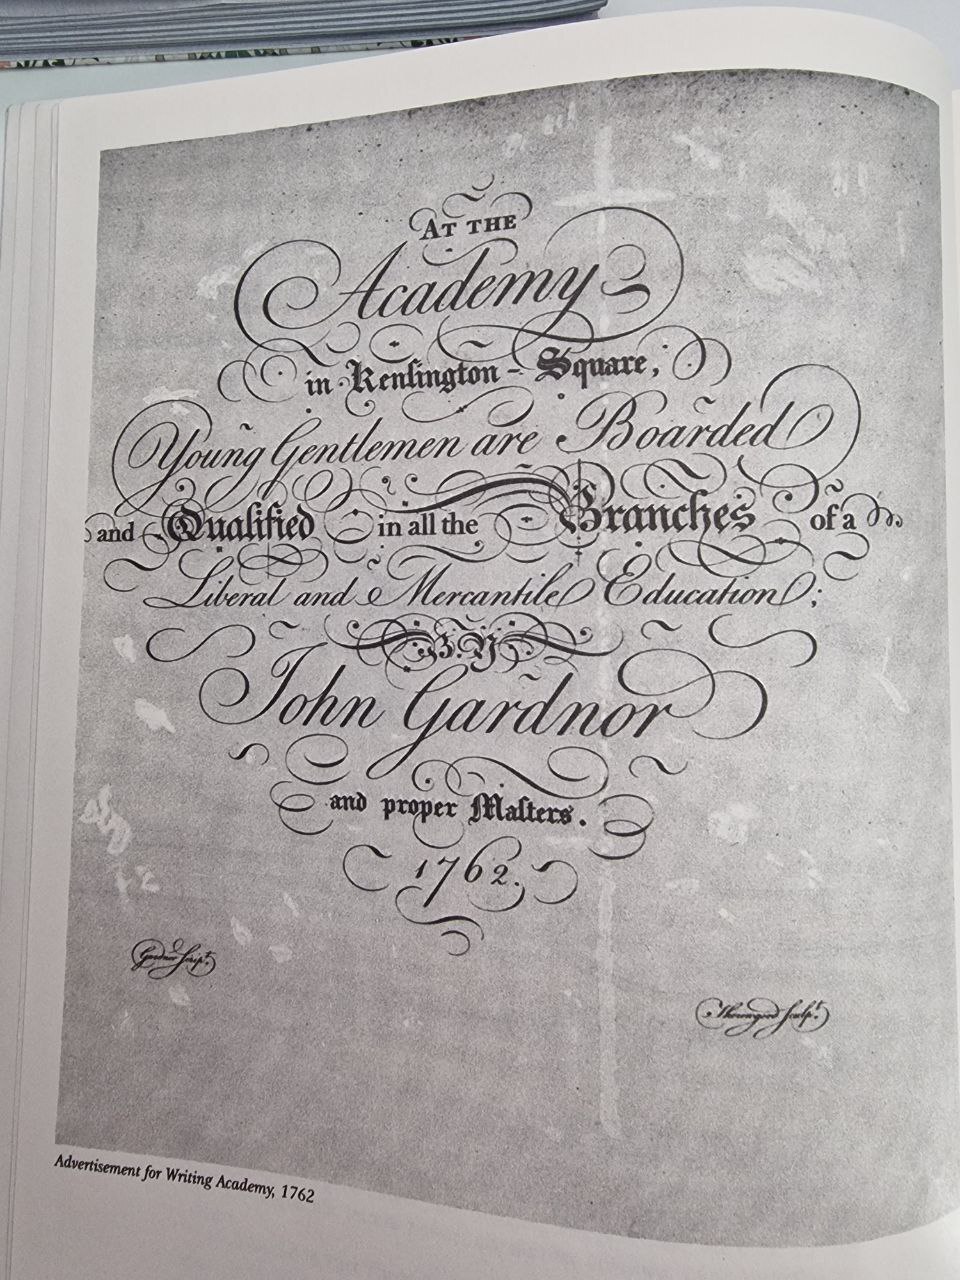 At the
Academy
in Kenſington - Square,
Young Gentlemen are Boarded
and Qualified in all the Branches of a
Liberal and Mercantile Education;
By
John Gardnor
and proper Maſters.
1762.
Gardnor Scripᵗ.
Thorowgood Sculpᵗ.
Advertisement for Writing Academy, 1762